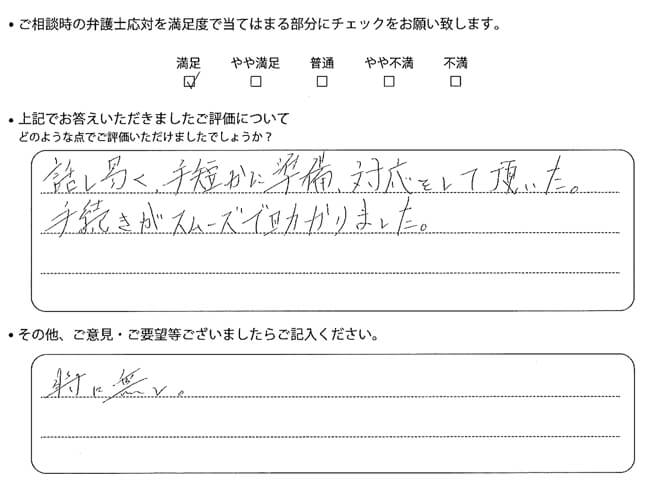 • ご相談時の弁護士応対を満足度で当てはまる部分にチェックをお願い致します。
満足 やや満足 普通 やや不満 不満
• 上記でお答えいただきましたご評価について
どのような点でご評価いただけましたでしょうか？
話し易く、手短かに準備、対応をして頂いた。
手続きがスムーズで助かりました。
• その他、ご意見・ご要望等ございましたらご記入ください。
特に無し。